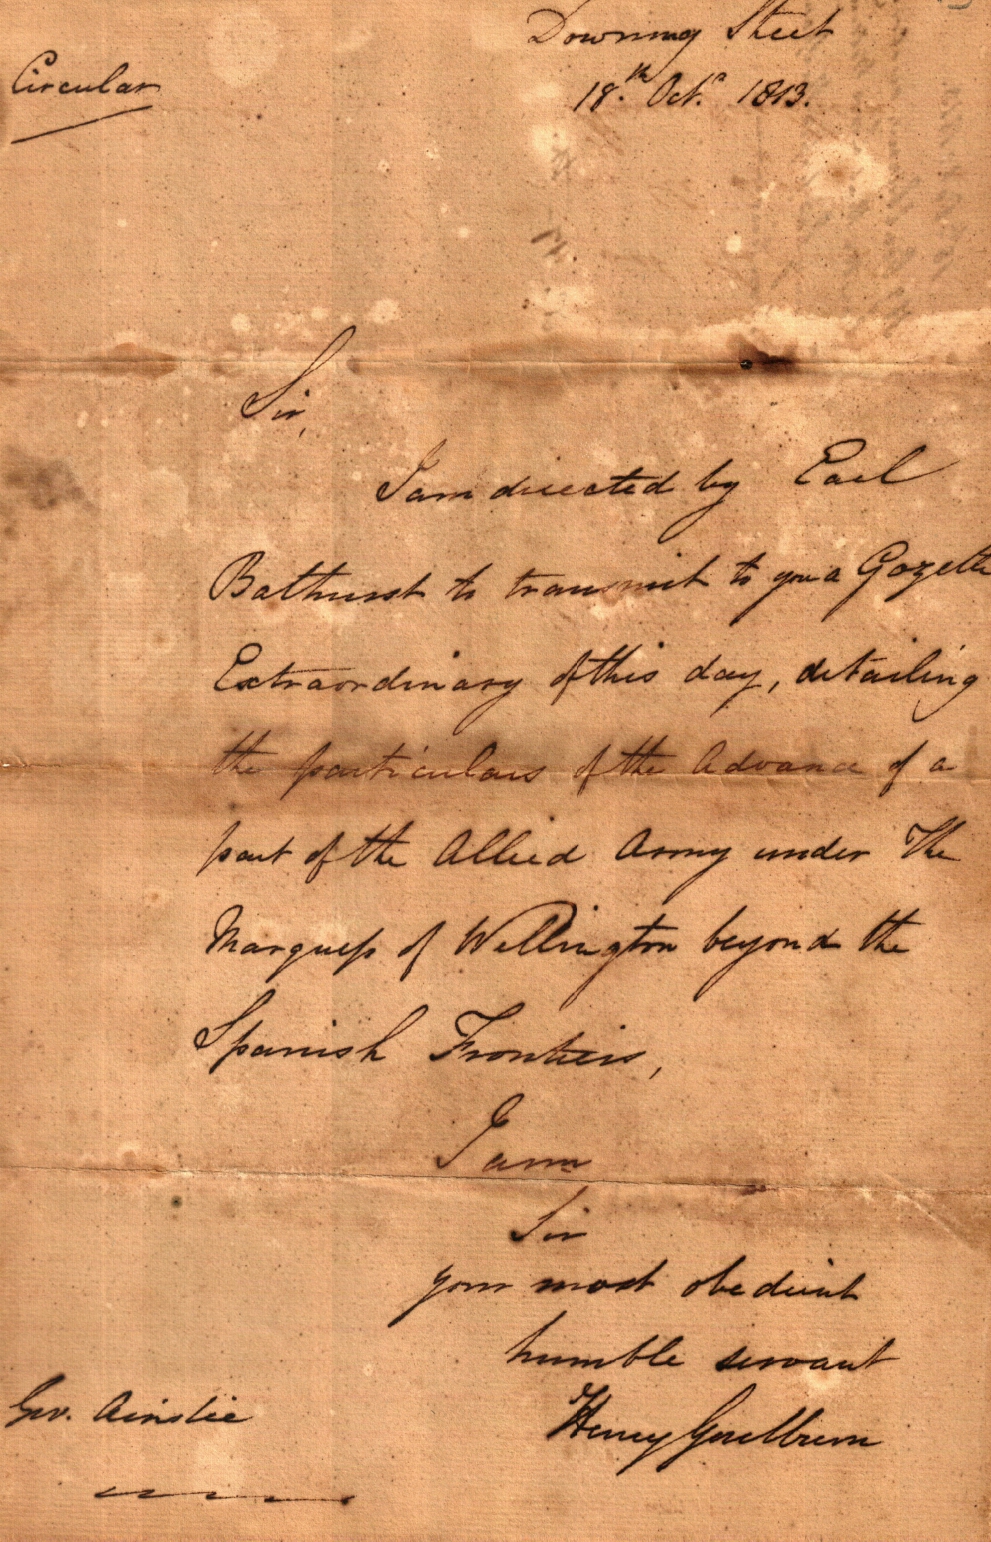 Downing Street
Circular
18.th Oct.r 1813.
Sir,
I am directed by Earl
Bathurst to transmit to you a Gazette
Extraordinary of this day, detailing
the particulars of the Advance of a
part of the Allied Army under The
Marquess of Wellington beyond the
Spanish Frontiers,
I am
Sir
your most obedient
humble servant
Henry Goulburn
Gov. Ainslie